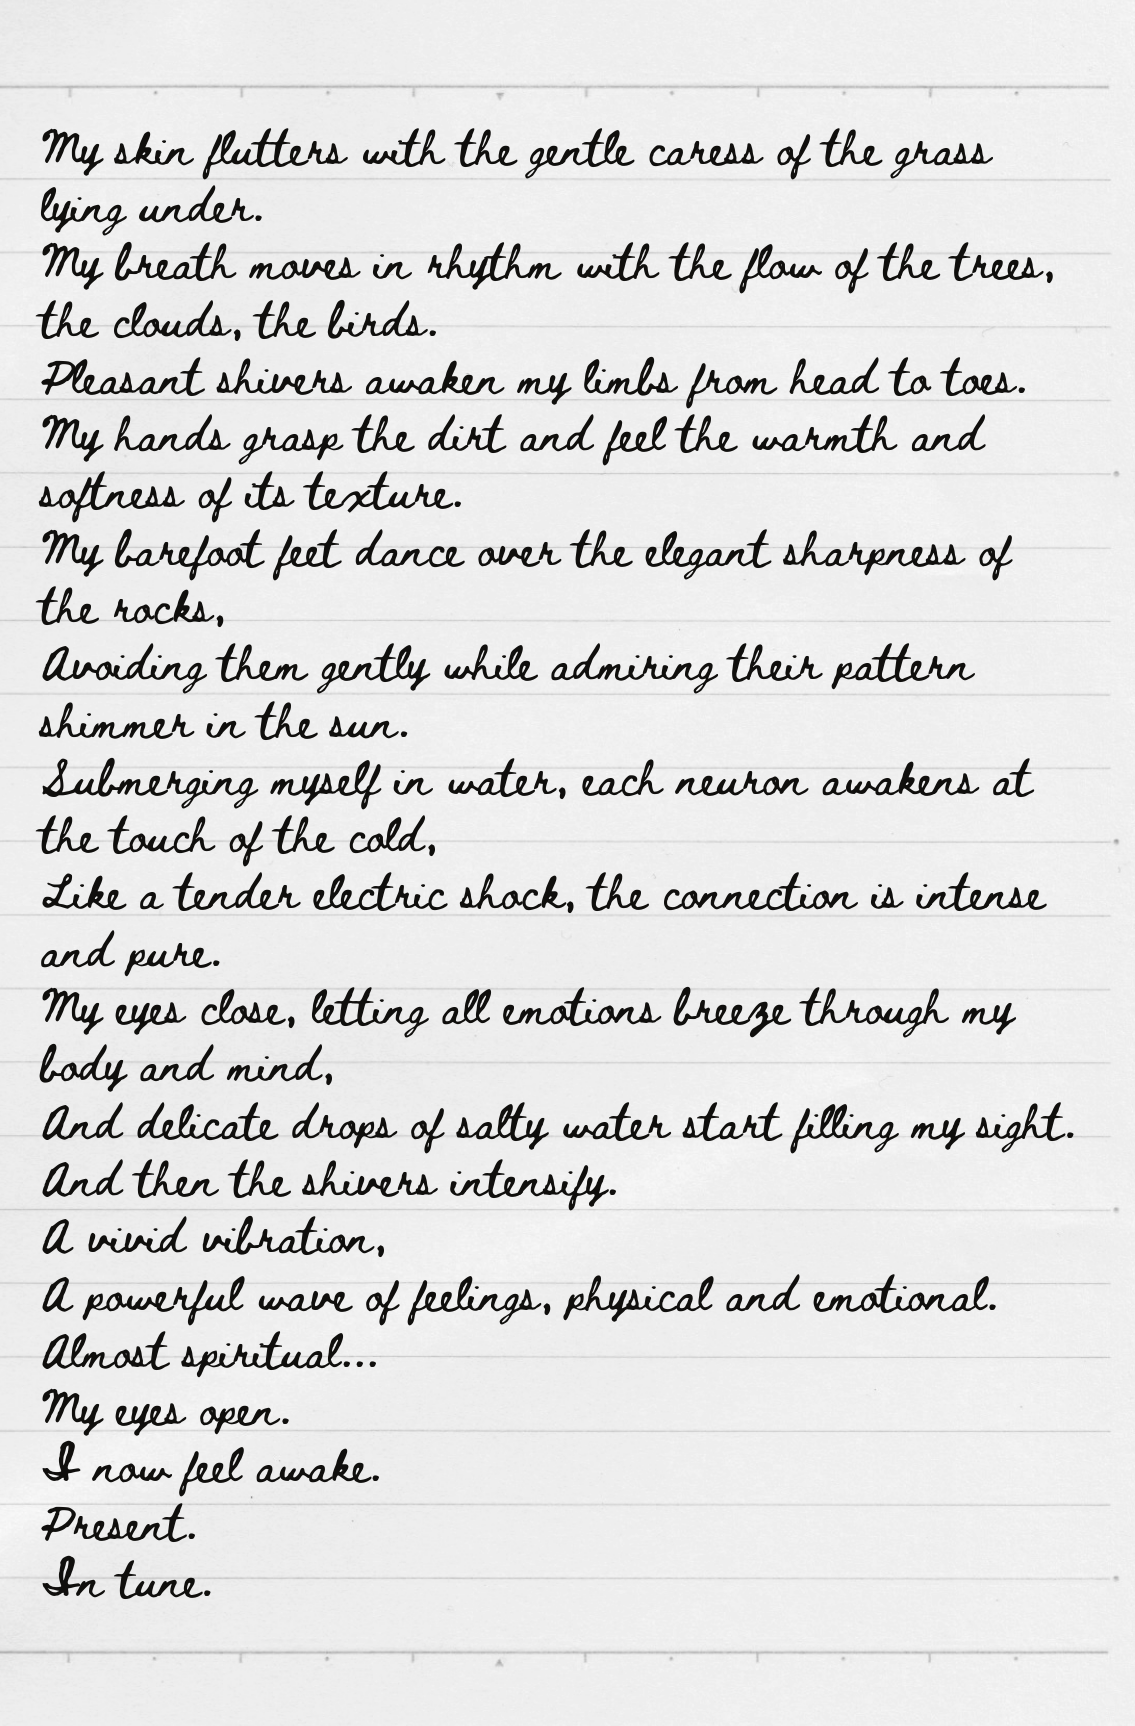 My skin flutters with the gentle caress of the grass
lying under.
My breath moves in rhythm with the flow of the trees,
the clouds, the birds.
Pleasant shivers awaken my limbs from head to toes.
My hands grasp the dirt and feel the warmth and
softness of its texture.
My barefoot feet dance over the elegant sharpness of
the rocks,
Avoiding them gently while admiring their pattern
shimmer in the sun.
Submerging myself in water, each neuron awakens at
the touch of the cold,
Like a tender electric shock, the connection is intense
and pure.
My eyes close, letting all emotions breeze through my
body and mind,
And delicate drops of salty water start filling my sight.
And then the shivers intensify.
A vivid vibration,
A powerful wave of feelings, physical and emotional.
Almost spiritual...
My eyes open.
I now feel awake.
Present.
In tune.